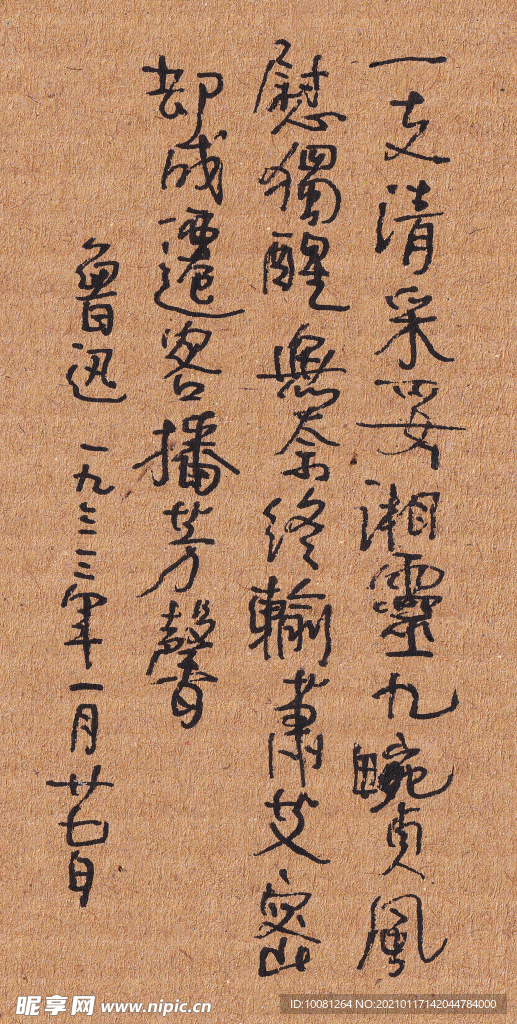 一支清采妥湘靈九畹貞風
慰獨醒無奈終輸蕭艾密
却成遷客播芳馨
魯迅 一九三三年一月廿七日
昵享网 www.nipic.cn
ID:10081264 NO:20210117142044784000